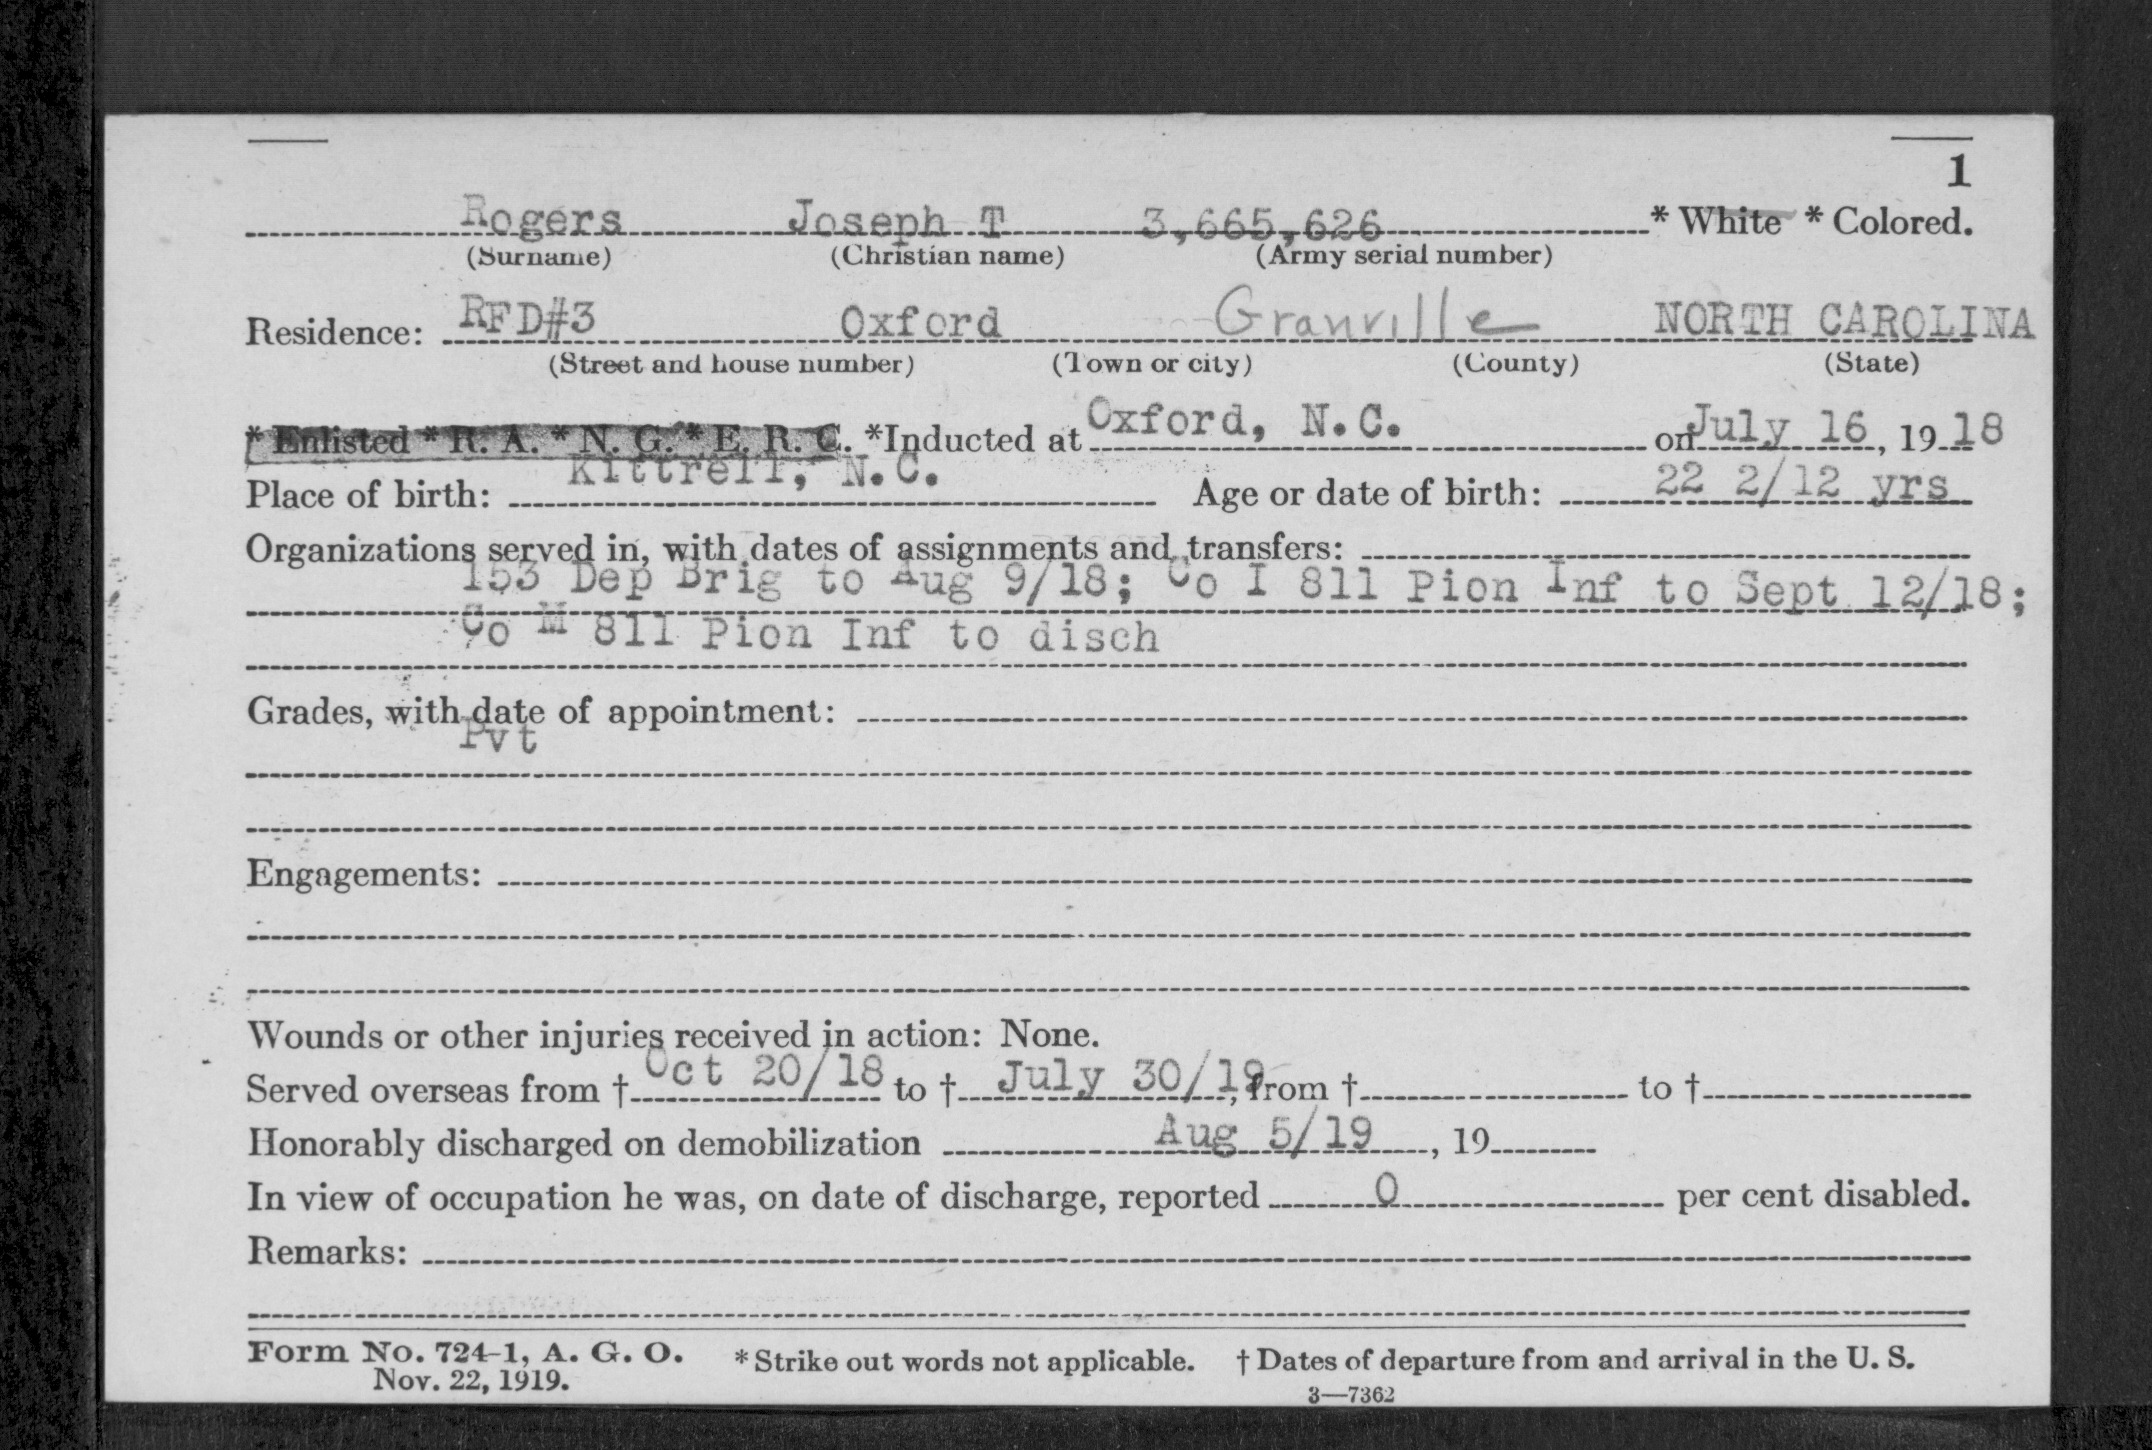 1
Rogers Joseph T 3,665,626 * White * Colored.
(Surname) (Christian name) (Army serial number)
Residence: RFD#3 Oxford Granville NORTH CAROLINA
(Street and house number) (Town or city) (County) (State)
* Enlisted * R. A. * N. G. * E. R. C. *Inducted at Oxford, N.C. on July 16, 19 18
Place of birth: Kittrell, N.C. Age or date of birth: 22 2/12 yrs
Organizations served in, with dates of assignments and transfers:
153 Dep Brig to Aug 9/18; Co I 811 Pion Inf to Sept 12/18;
Co M 811 Pion Inf to disch
Grades, with date of appointment:
Pvt
Engagements:
Wounds or other injuries received in action: None.
Served overseas from † Oct 20/18 to † July 30/19, from † to †
Honorably discharged on demobilization Aug 5/19, 19
In view of occupation he was, on date of discharge, reported 0 per cent disabled.
Remarks:
Form No. 724-1, A. G. O. * Strike out words not applicable. † Dates of departure from and arrival in the U. S.
Nov. 22, 1919.
3—7362